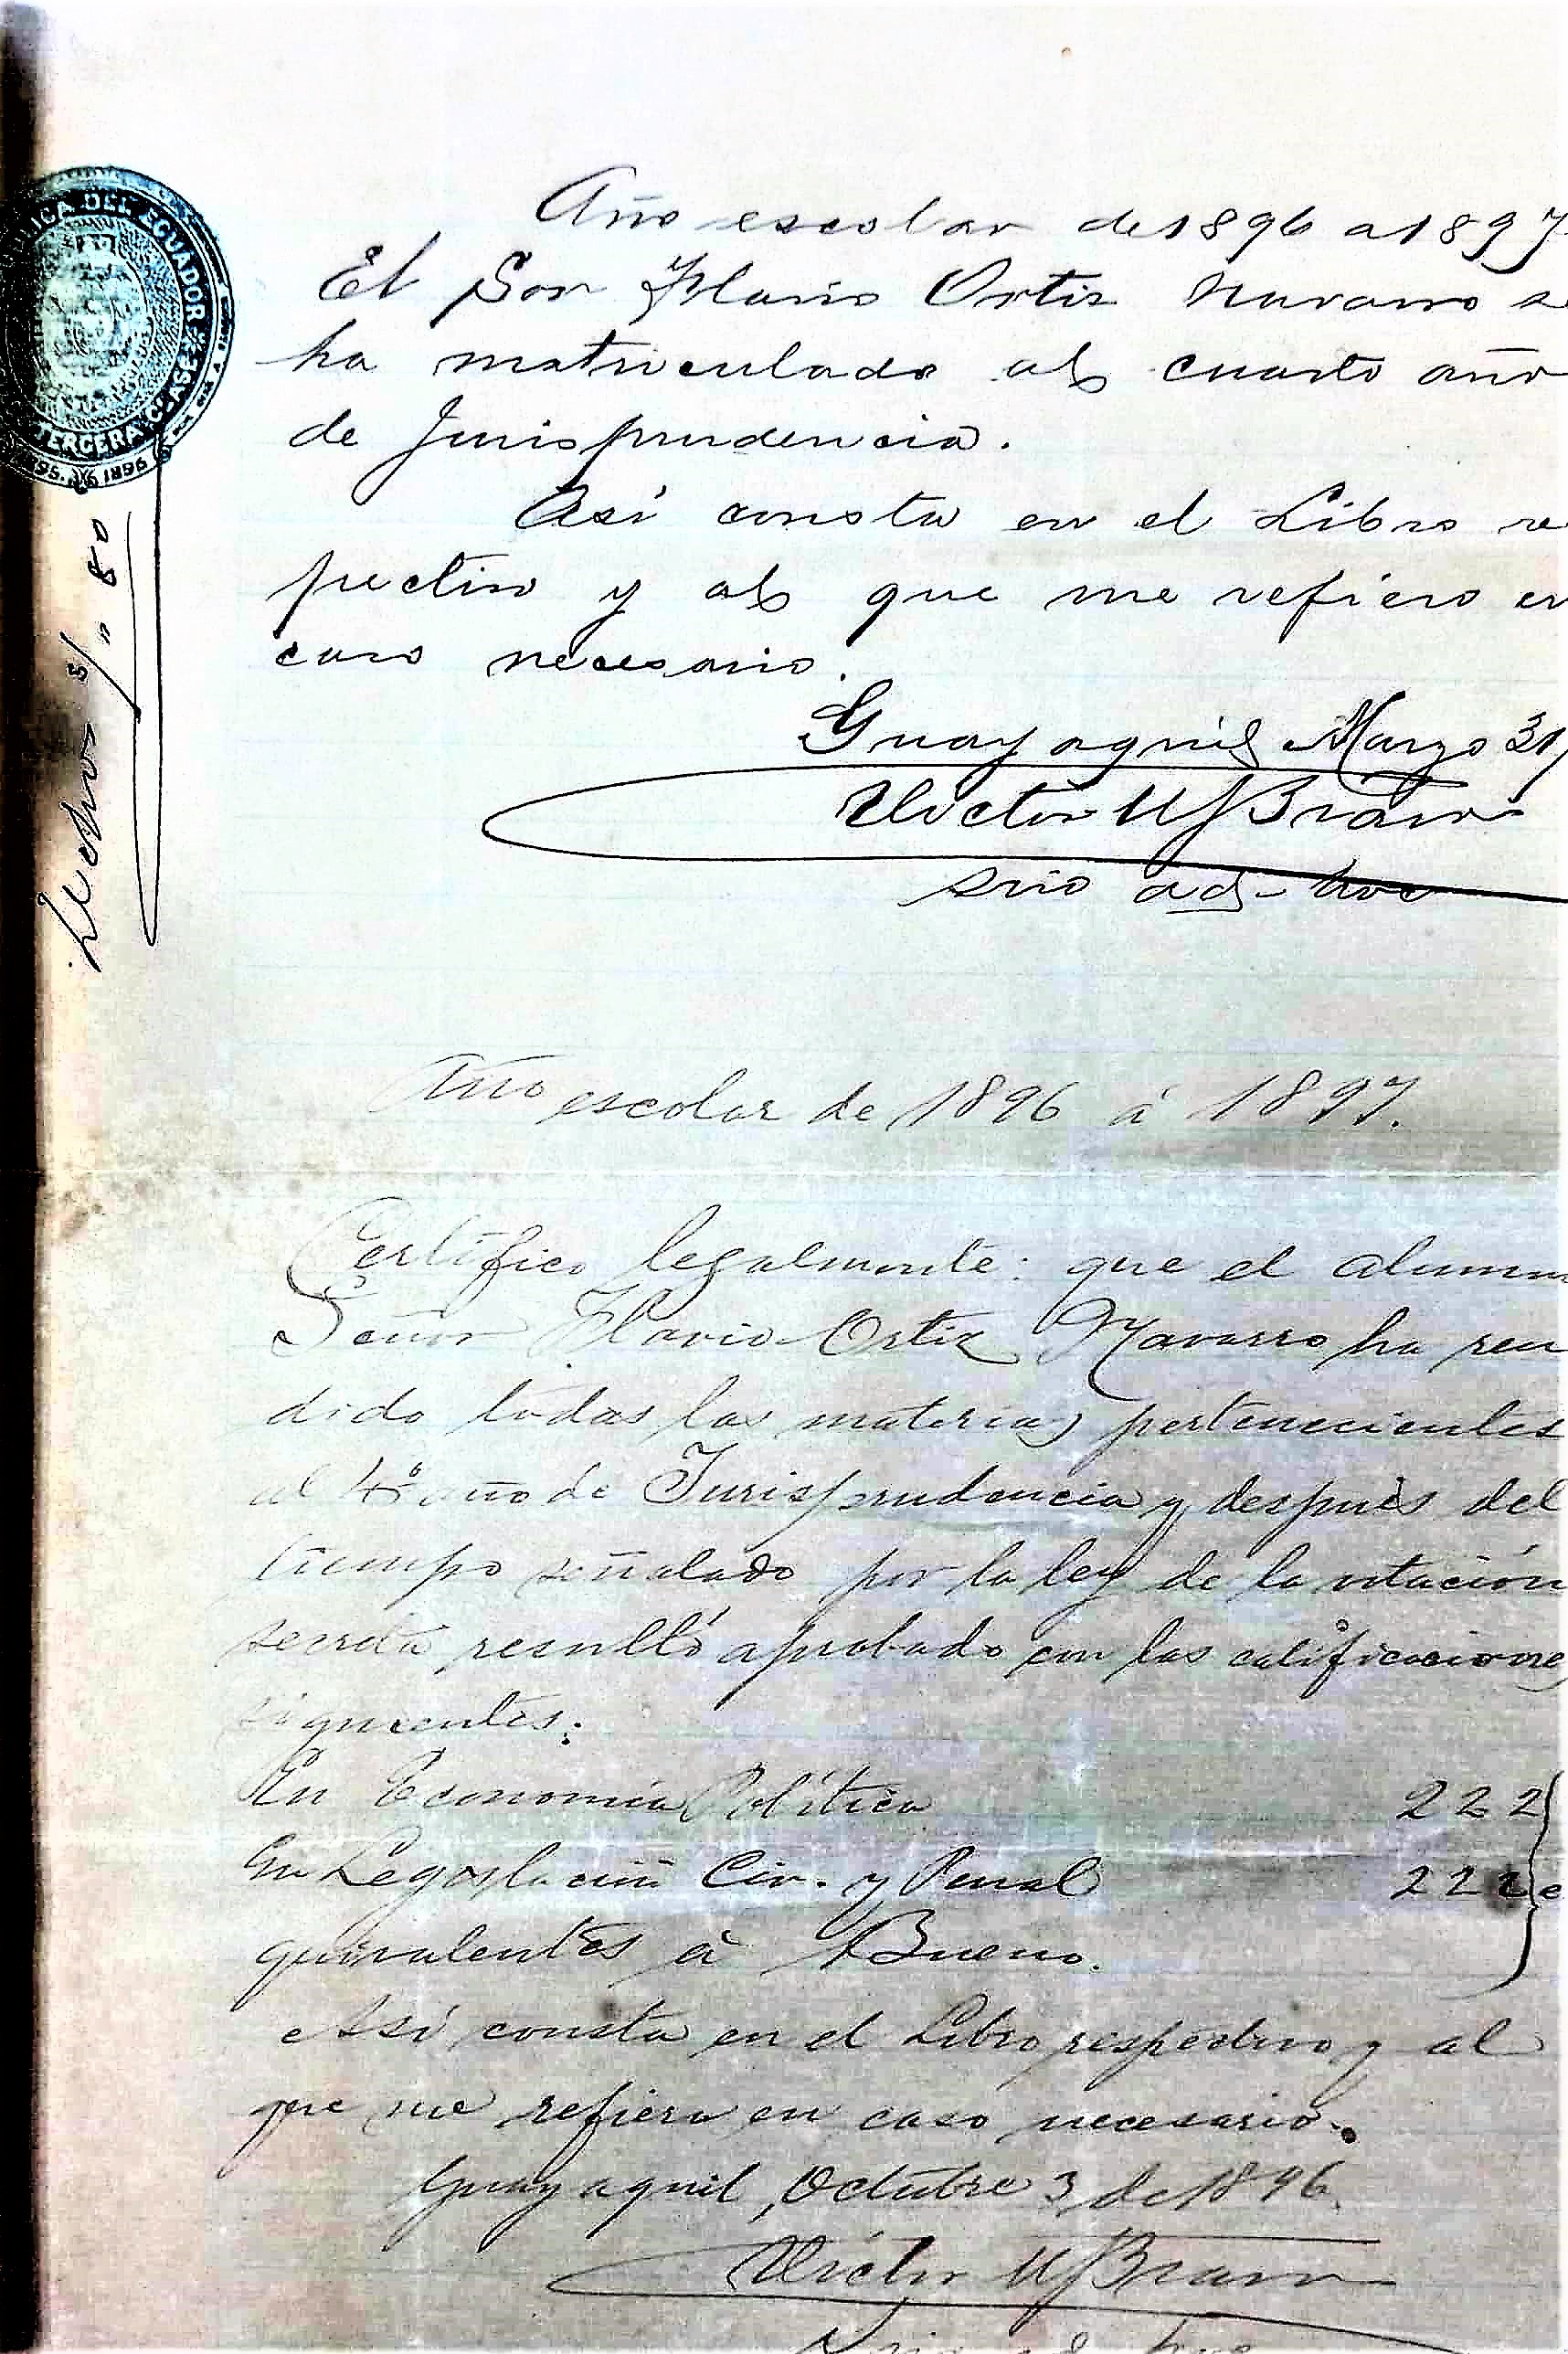 Año escolar de 1896 a 1897
El Sor Flavio Ortiz Navarro s
ha matriculado al cuarto año
de Jurisprudencia.
Así consta en el Libro re
pectivo y al que me refiero en
caso necesario.
Guayaquil Marzo 31
Víctor M Bravo
srio ad-hoc
ICA DEL ECUADOR
TERCERA CLASE
1895. 1896
80
Año escolar de 1896 á 1897.
Certifico legalmente: que el alumn
Señor Flavio Ortiz Navarro ha ren
dido todas las materias pertenecientes
al 4º año de Jurisprudencia y después del
tiempo señalado por la ley de la votación
secreta resultó aprobado con las calificaciones
siguientes:
En Economía Política 222
En Legislación Civ. y Penal 222 e
quivalentes á Bueno.
Así consta en el Libro respectivo y al
que me refiero en caso necesario.
Guayaquil, Octubre 3 de 1896.
Víctor M Bravo
Srio ad hoc